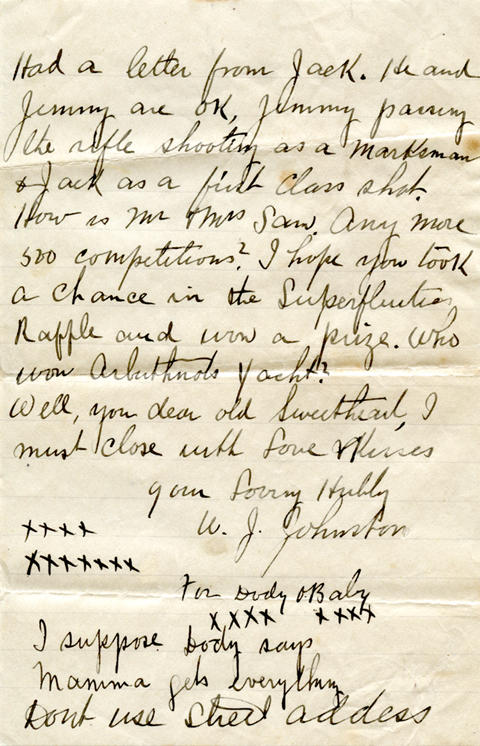 Had a letter from Jack. He and
Jimmy are OK, Jimmy passing
the rifle shooting as a marksman
& Jack as a first class shot.
How is Mr & Mrs Saw. Any more
500 competitions? I hope you took
a chance in the Superfluities
Raffle and won a prize. Who
won Arbuthnots Yacht?
Well, you dear old Sweetheart, I
must close with Love & Kisses
your Loving Hubby
xxxx W. J. Johnston
xxxxxxx
For Dody & Baby
xxxx xxxx
I suppose Dody says
Mamma gets everything
Dont use street addess